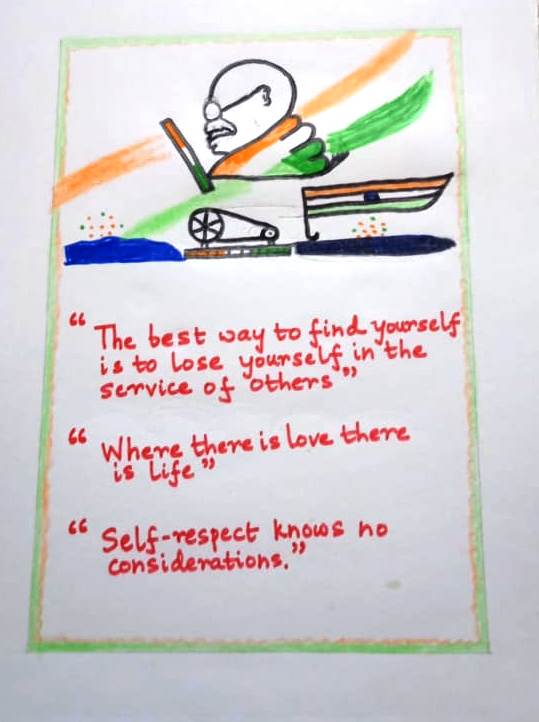 “ The best way to find yourself
is to lose yourself in the
service of others”
“ Where there is love there
is life”
“ Self-respect knows no
considerations.”